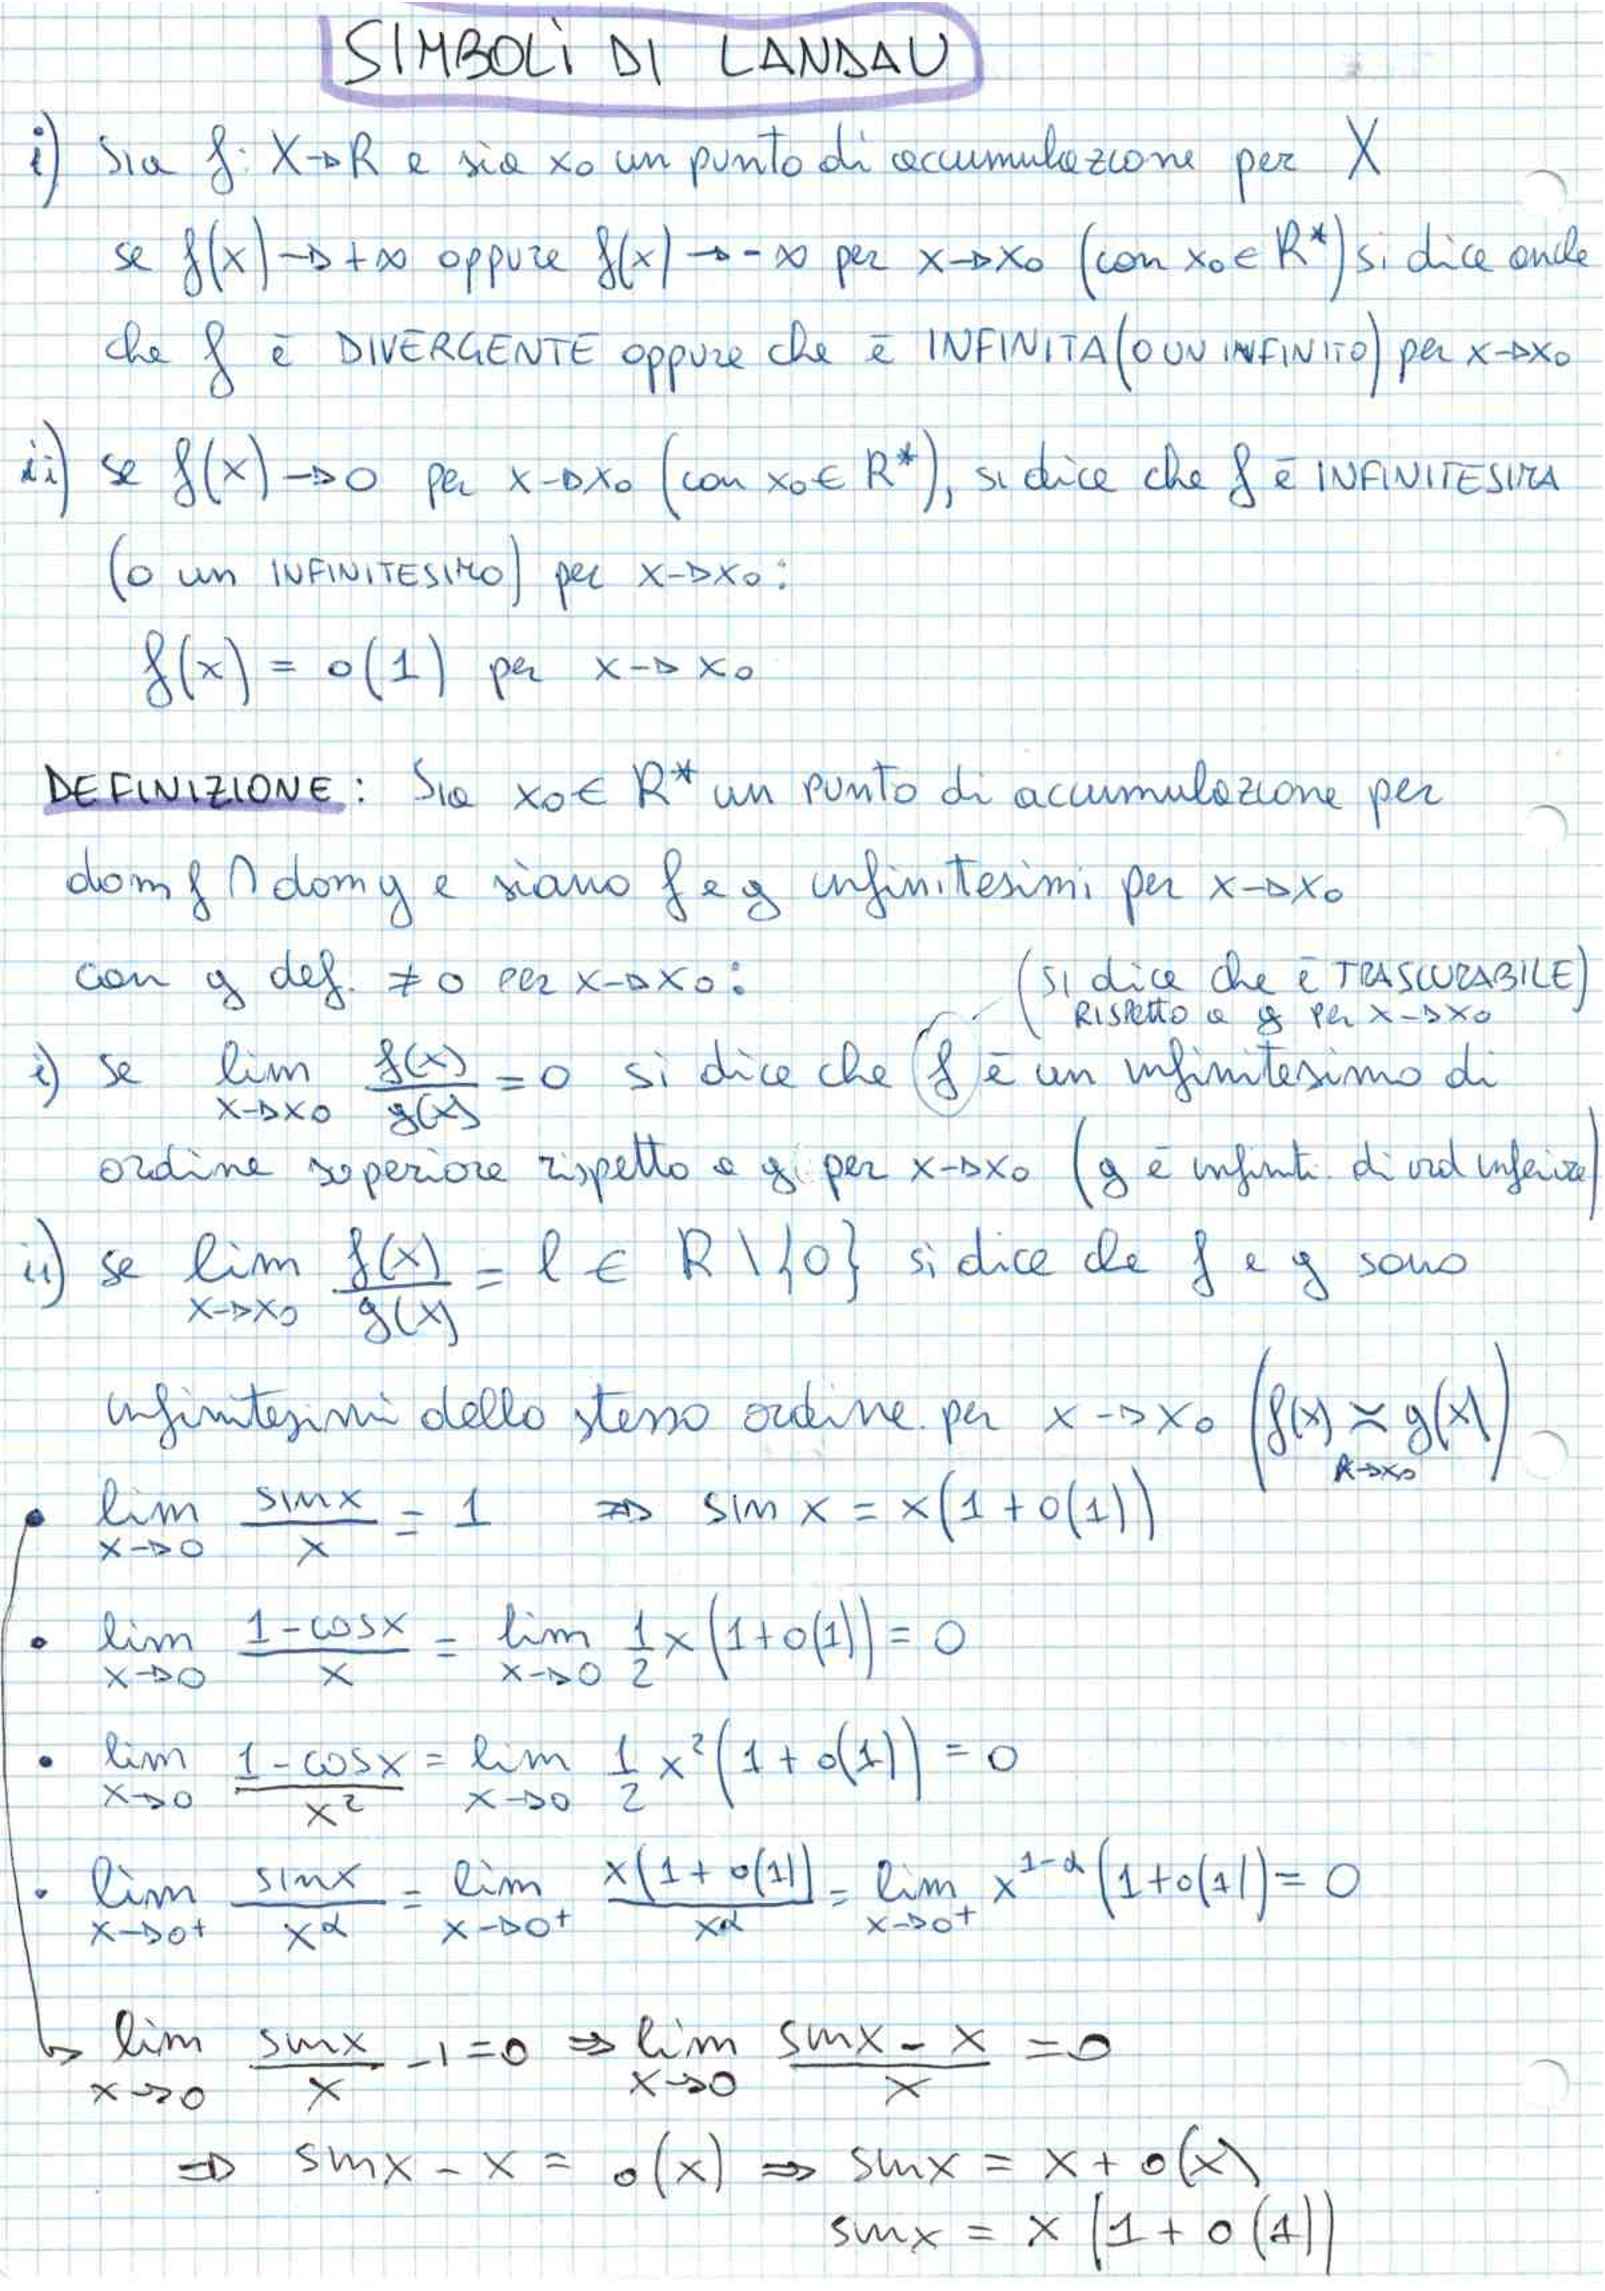 SIMBOLI DI LANDAU
i) Sia f: X→R e sia x₀ un punto di accumulazione per X
se f(x)→+∞ oppure f(x)→-∞ per x→x₀ (con x₀∈R*) si dice anche
che f è DIVERGENTE oppure che è INFINITA (O UN INFINITO) per x→x₀
ii) se f(x)→0 per x→x₀ (con x₀∈R*), si dice che f è INFINITESIMA
(o un INFINITESIMO) per x→x₀:
f(x) = o(1) per x→x₀
DEFINIZIONE: Sia x₀∈R* un punto di accumulazione per
dom f ∩ dom g e siano f e g infinitesimi per x→x₀
con g def. ≠0 per x→x₀:
(si dice che è TRASCURABILE)
RISPETTO a g per x→x₀
i) se lim x→x₀ f(x)/g(x) = 0 si dice che f è un infinitesimo di
ordine superiore rispetto a g per x→x₀ (g è infinit. di ord inferiore)
ii) se lim x→x₀ f(x)/g(x) = l ∈ R\{0} si dice che f e g sono
infinitesimi dello stesso ordine per x→x₀ (f(x) ≍ g(x) x→x₀)
• lim x→0 sinx/x = 1 ⇒ sin x = x(1+o(1))
• lim x→0 1-cosx/x = lim x→0 1/2 x(1+o(1)) = 0
• lim x→0 1-cosx/x² = lim x→0 1/2 x²(1+o(1)) = 0
• lim x→0⁺ sinx/x^α = lim x→0⁺ x(1+o(1))/x^α = lim x→0⁺ x^(1-α) (1+o(1)) = 0
↳ lim x→0 sinx/x -1=0 ⇒ lim x→0 sinx - x/x = 0
⇒ sinx - x = o(x) ⇒ sinx = x + o(x)
sinx = x (1+o(1))